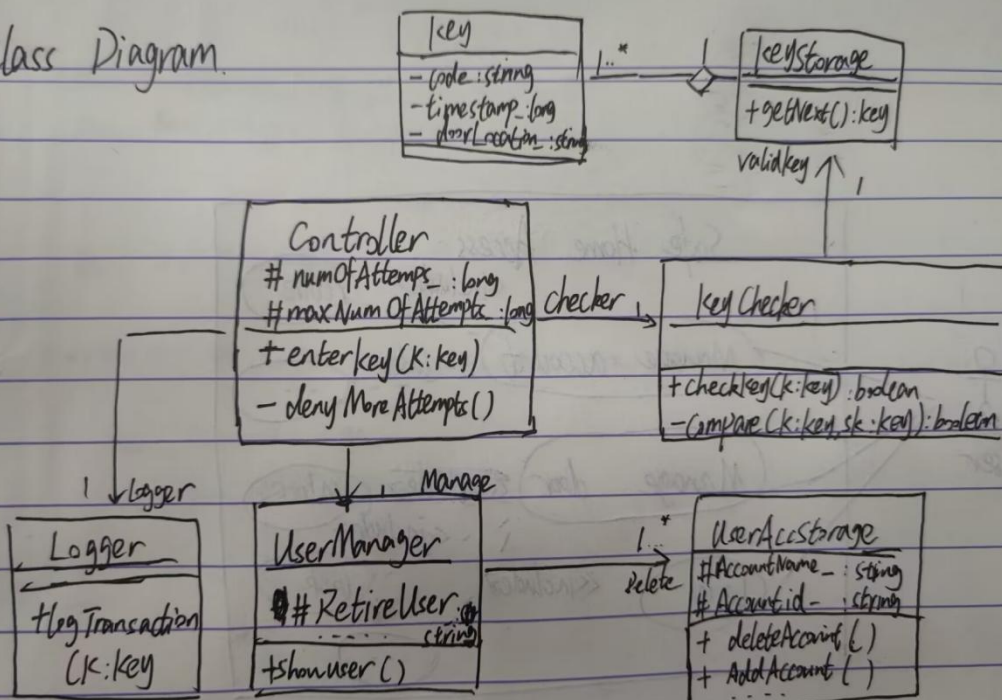 lass Diagram.
key
- code : string
- timestamp_ : long
- doorLocation_ : string
1..*
1
keyStorage
+ getNext() : key
validkey
1
Controller
# numOfAttemps_ : long
# maxNumOfAttempts_ : long
+ enterkey (k : key)
- denyMoreAttempts()
checker
1
key Checker
+ checkkey (k : key) : boolean
- compare (k : key, sk : key) : boolean
1
Logger
Logger
+ logTransaction
(k : key
1
Manage
UserManager
# RetireUser :
..... string
+ showuser ()
1...*
Delete
UserAccStorage
# AccountName_ : string
# Accountid_ : string
+ deleteAccount ()
+ AddAccount ()
.....